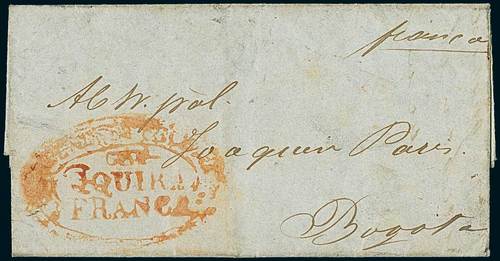 franca
Al W. pöl.
Joaquin Paris.
Bogota
QUIRA
FRANCA